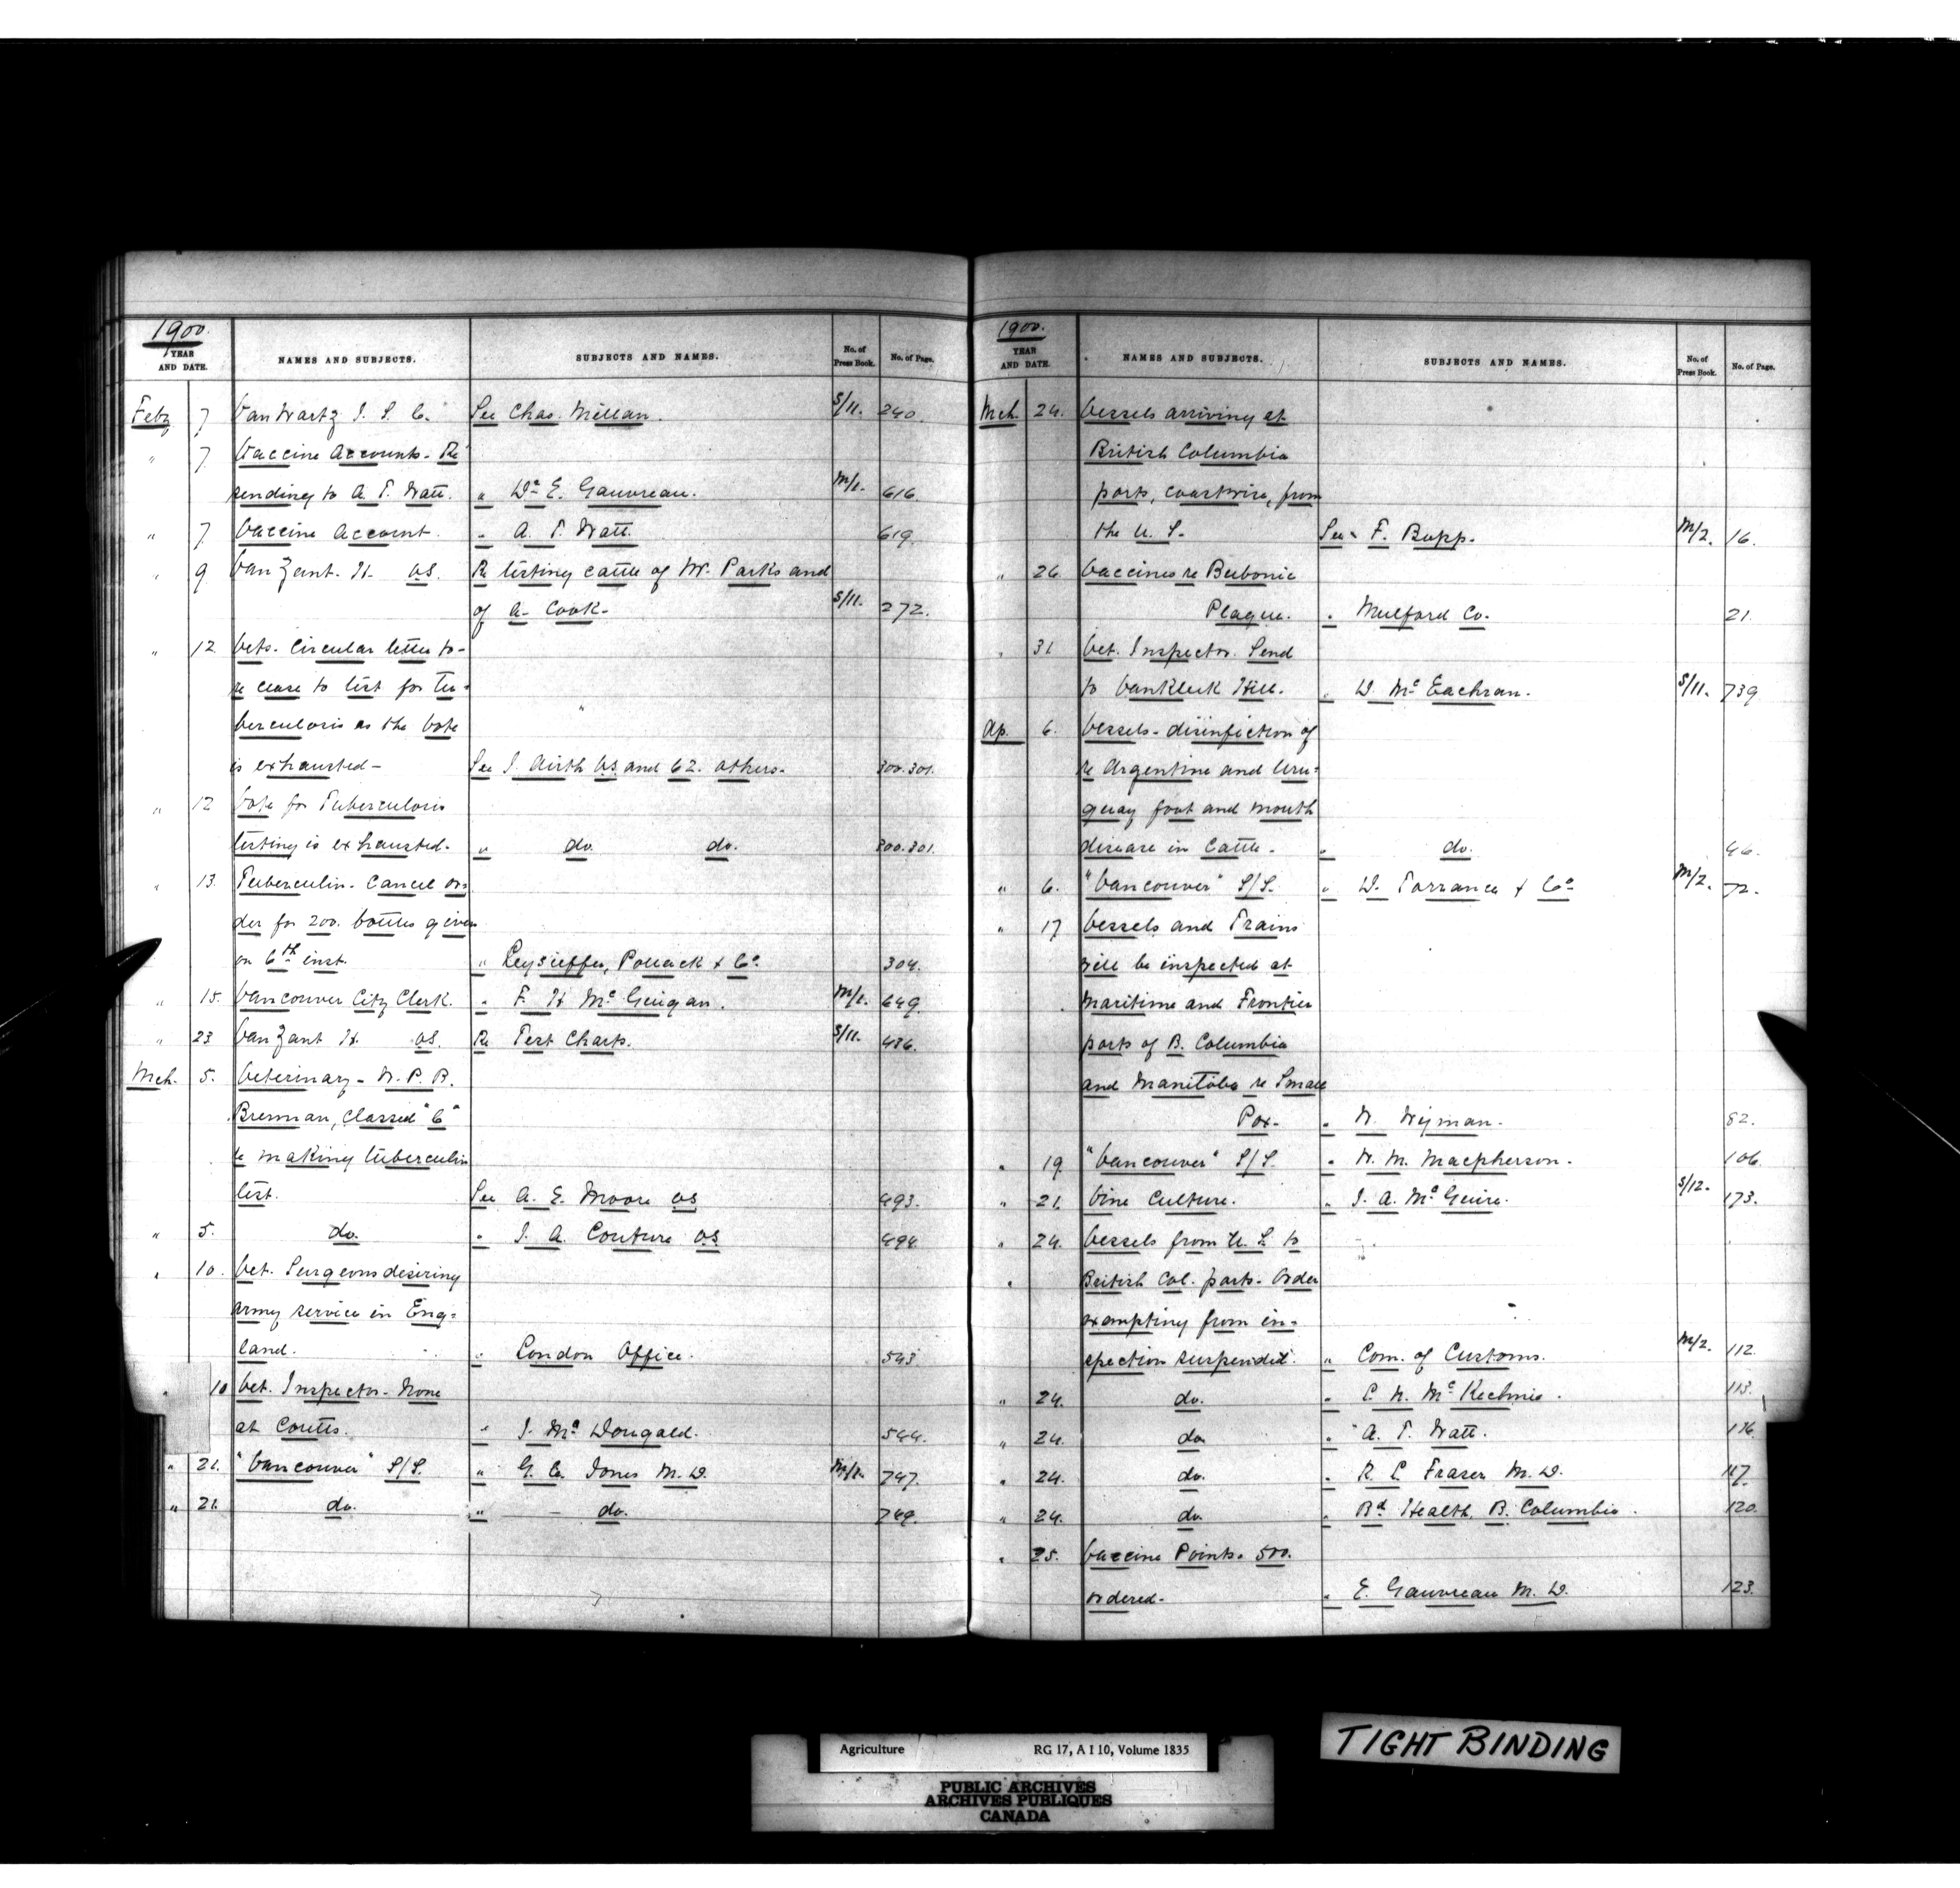 1900.
YEAR AND DATE. NAMES AND SUBJECTS. SUBJECTS AND NAMES. No. of Press Book. No. of Page.
Feby 7 Van Wartz J. S. C. See Chas. Millan. S/11. 240
" 7 Vaccine Accounts - Re
sending to A. T. Watt. " Dr E. Gauvreau. M/1. 616.
" 7 Vaccine Account. " A. T. Watt. 619.
" 9 Van Zant. H. V.S. Re testing cattle of W. Parks and
of A. Cook. S/11. 272.
" 12 Vets. Circular letter to -
re cease to test for Tu-
berculosis as the Vote
is exhausted - See J. Airth V.S. and 62. others. 300.301.
" 12 Vote for Tuberculosis
testing is exhausted. " do. do. 300.301.
" 13. Tuberculin - Cancel or-
der for 200. bottles given
on 6th inst. " Leysieffer, Pollack & Co. 304.
" 15. Vancouver City Clerk. " F. H McGuigan. M/1. 649.
" 23 Van Zant H. V.S. Re Test Charts. S/11. 436.
Mch. 5. Veterinary - W. P. B.
Brennan, classed "C"
re making tuberculin
test. See A. E. Moore V.S 493.
" 5. do. " J. A. Couture V.S 494.
" 10. Vet. Surgeons desiring
army service in Eng-
land. " London Office. 543
" 10 Vet. Inspector - None
at Coutts. " J. McDougald. 544.
" 21. "Vancouver" S/S. " G. C. Jones M.D. M/1. 747.
" 21. do. " do. 749.
1900.
YEAR AND DATE. NAMES AND SUBJECTS. SUBJECTS AND NAMES. No. of Press Book. No. of Page.
Mch. 24. Vessels arriving at
British Columbia
ports, coastwise, from
the U. S. See F. Bopp. M/2. 16.
" 26. Vaccines re Bubonic
Plague. " Mulford Co. 21.
" 31 Vet. Inspector. Send
to Vankleek Hill. " D. McEachran. S/11. 739
Ap. 6. Vessels - disinfection of
re Argentine and Uru-
guay foot and mouth
disease in Cattle. " do. 46.
" 6. "Vancouver" S/S. " D. Torrance & Co. M/2. 72.
" 17 Vessels and Trains
will be inspected at
Maritime and Frontier
ports of B. Columbia
and Manitoba re Small
Pox. " W. Wyman. 82.
" 19 "Vancouver" S/S. " W. M. Macpherson. 106.
" 21. Vine Culture. " J. A. McGuire. S/12. 173.
" 24. Vessels from U. S. to
" British Col. ports. Order
exempting from in-
spection suspended. " Com. of Customs. M/2. 112.
" 24. do. " C. N. McKechnie. 113.
" 24. do. " A. T. Watt. 116.
" 24. do. " R. L. Fraser M.D. 117.
" 24. do. " Bd Health, B. Columbia. 120.
" 25. Vaccine Points. 500.
ordered. " E. Gauvreau M.D. 123.
Agriculture RG 17, A I 10, Volume 1835
PUBLIC ARCHIVES
ARCHIVES PUBLIQUES
CANADA
TIGHT BINDING